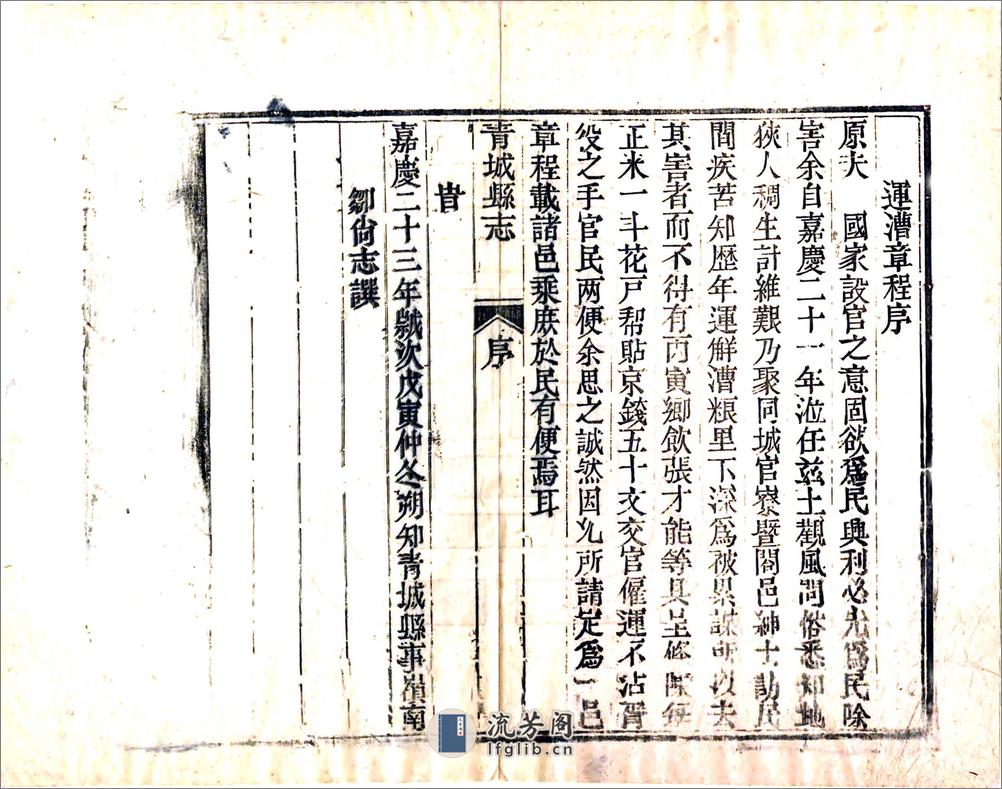 運漕章程序
原夫　國家設官之意固欲爲民興利必先爲民除
害余自嘉慶二十一年涖任兹土觀風問俗悉知地
狹人稠生計維艱乃聚同城官寮暨閤邑紳士訪民
間疾苦知歷年運觧漕粮里下深爲被累謀所以去
其害者而不得有丙寅鄉飲張才能等具呈條陳每
正米一斗花戸帮貼京錢五十文交官僱運不沾胥
役之手官民两便余思之誠然因允所請定爲一邑
章程載諸邑乘庶於民有便焉耳
青城縣志
序
旹
嘉慶二十三年歲次戊寅仲冬朔知青城縣事嶺南
鄒尙志譔
流芳阁
lfglib.cn